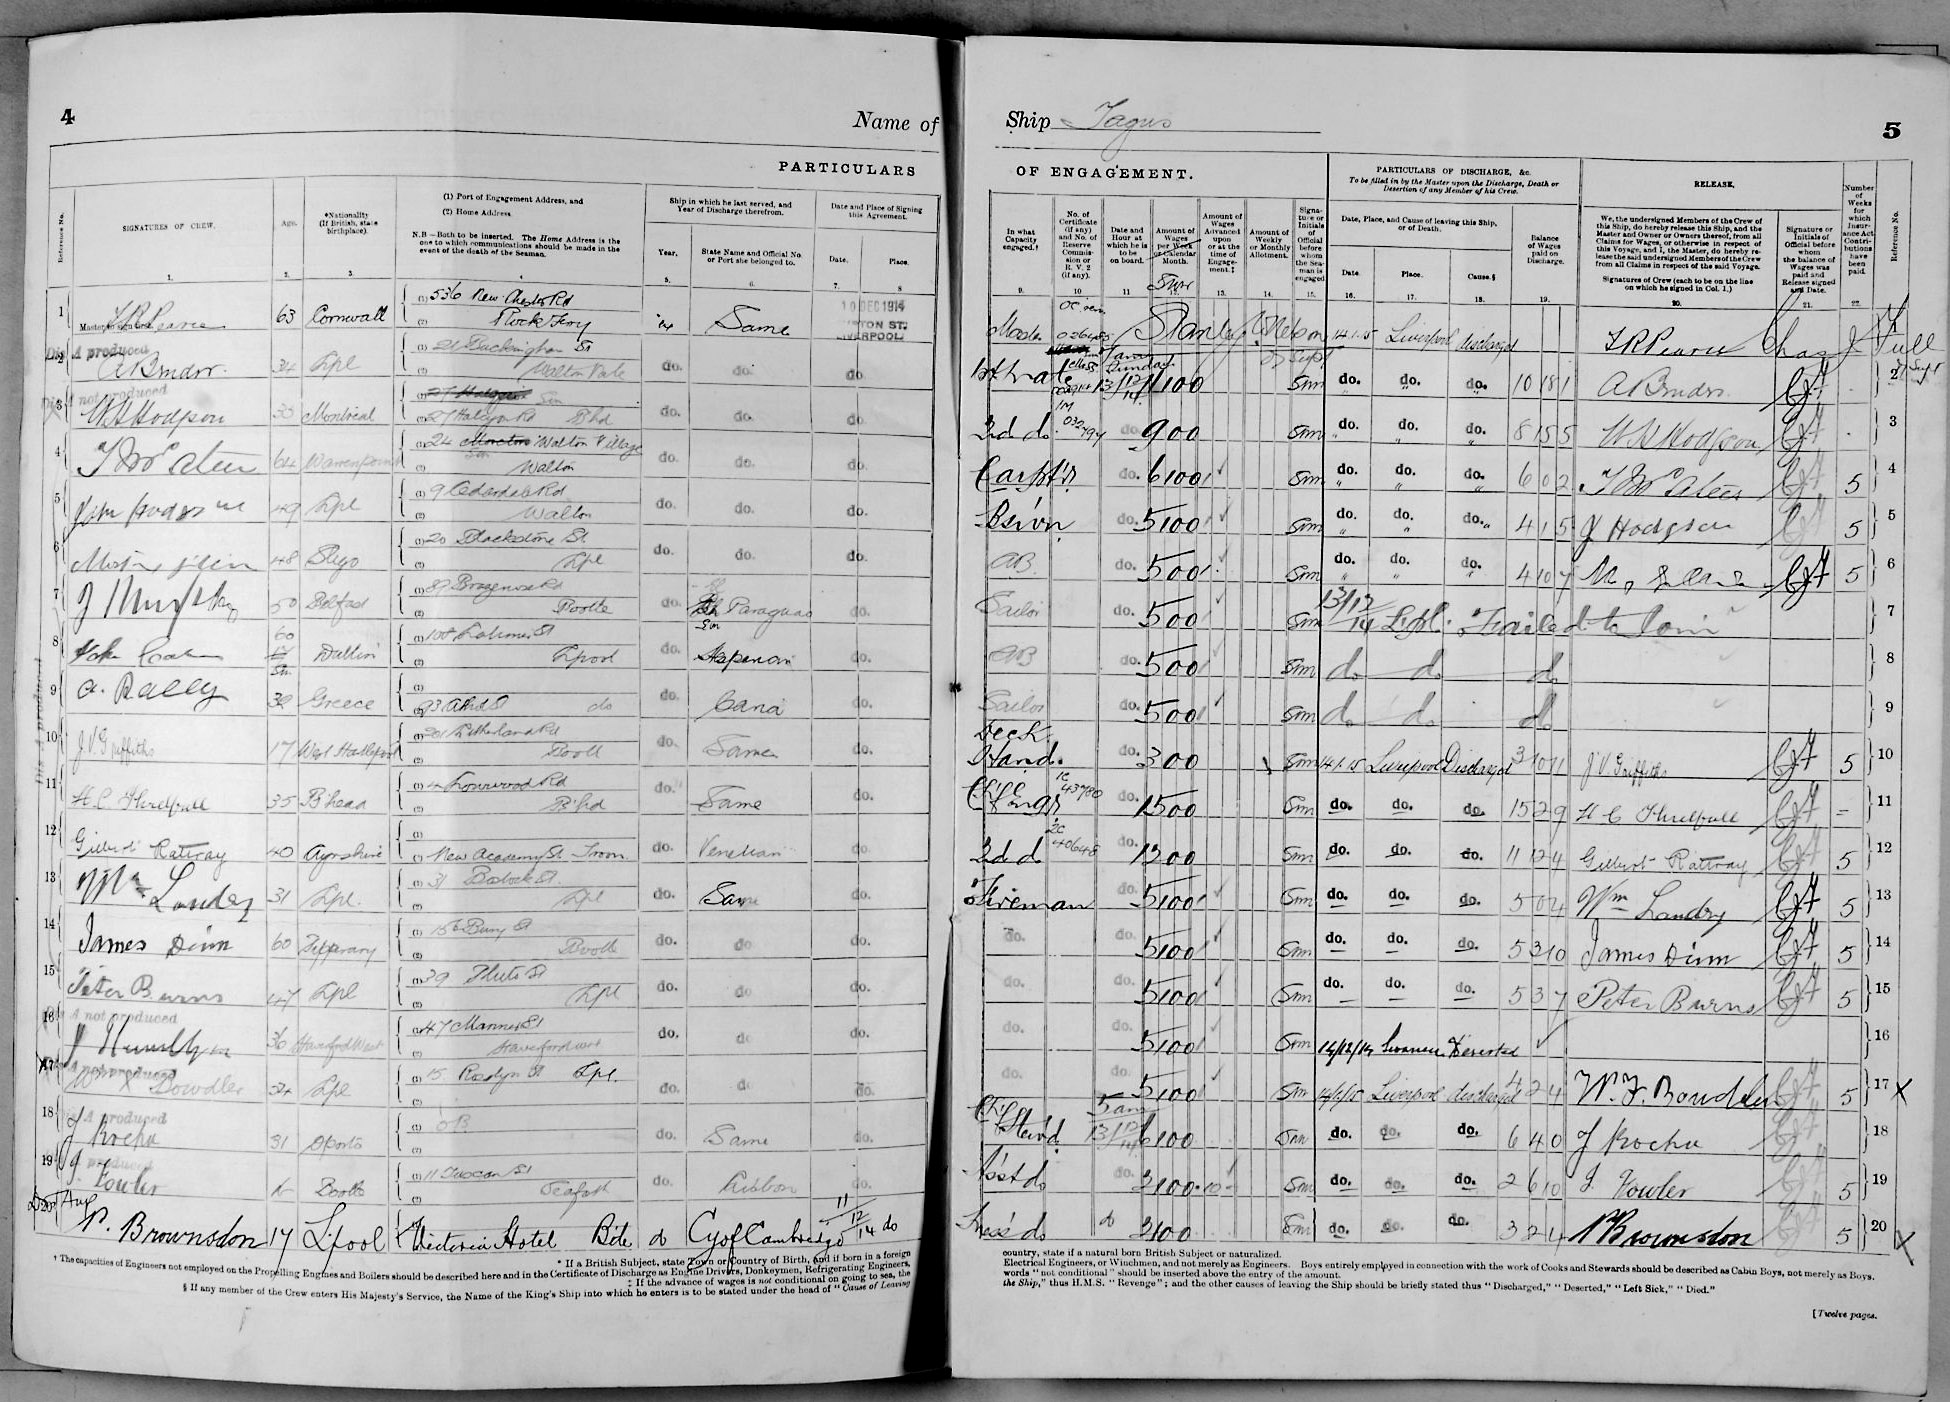 4
Name of
PARTICULARS
Reference No.
SIGNATURES OF CREW.
Age.
*Nationality
(If British, state
birthplace).
(1) Port of Engagement Address, and
(2) Home Address.
N.B—Both to be inserted. The Home Address is the
one to which communications should be made in the
event of the death of the Seaman.
Ship in which he last served, and
Year of Discharge therefrom.
Year.
State Name and Official No.
or Port she belonged to.
Date and Place of Signing
this Agreement.
Date.
Place.
1. 2. 3. 4 5. 6. 7. 8
1 63 Cornwall (1) 536 New Chester Rd '14 Same 10 DEC 1914
(2) Rock Ferry LIVERPOOL
A produced
2 34 Lpl (1) 21 Buckingham St do. do. do.
(2) Walton Vale
not produced
3 W H Hodgson 35 Montreal (1)
(2) 27 Halcyon Rd B'hd do. do. do.
4 64 Warrenpoint (1) 24 Walton Village do. do. do.
(2) Walton
5 49 Lpl (1) 9 Cedardale Rd do. do. do.
(2) Walton
6 48 Sligo (1) 20 Blackstone St do. do. do.
(2) Lpl
7 50 Belfast (1) 89 Brasenose Rd do. Paraguay do.
(2) Bootle
8 60 Dublin (1) St do. do.
(2) Lpool
9 A. Rally 39 Greece (1)
(2) do do. Cana do.
10 J. V. Griffiths 17 West Hartlepool (1) 201 Litherland Rd do. Same do.
(2) Bootle
11 H. C. Threlfall 35 B'head (1) Rd do. Same do.
(2) B'hd
12 Gilbert Rattray 40 Ayrshire (1)
(2) New Academy St Troon do. Venetian do.
13 Wm Landry 31 Lpl. (1) 31 St. do. Same do.
(2) Lpl
14 James Dinn 60 Tipperary (1) 156 Bury St do. do do.
(2) Bootle
15 Peter Burns 47 Lpl (1) 39 Plato St do. do do.
(2) Lpl
A not produced
16 36 Haverfordwest (1) 47 Manner St do. do do.
(2) Haverfordwest
A not produced
17 W X Dowdler 34 Lpl (1) 15 Roslyn St Lpl. do. do do.
(2)
A produced
18 J Rocha 31 Oporto (1) OB do. Same do.
(2)
produced
19 J. Fowler Bootle (1) 11 Tuscan St do. Gibbon do.
(2) Seaforth
20 P. Brownsdon 17 L'pool Victoria Hotel do Cy of Cambridge 11/12/14 do
* If a British Subject, state Town or Country of Birth, and if born in a foreign
† The capacities of Engineers not employed on the Propelling Engines and Boilers should be described here and in the Certificate of Discharge as Engine Drivers, Donkeymen, Refrigerating Engineers,
‡ If the advance of wages is not conditional on going to sea, the
§ If any member of the Crew enters His Majesty's Service, the Name of the King's Ship into which he enters is to be stated under the head of "Cause of Leaving
Ship Tagus
5
OF ENGAGEMENT.
PARTICULARS OF DISCHARGE, &c.
To be filled in by the Master upon the Discharge, Death or
Desertion of any Member of his Crew.
RELEASE.
Number
of
Weeks
for
which
Insur-
ance Act
Contri-
butions
have
been
paid.
Reference No.
In what
Capacity
engaged.†
No. of
Certificate
(if any)
and No. of
Reserve
Commis-
sion or
R. V. 2
(if any).
Date and
Hour at
which he is
to be
on board.
Amount of
Wages
per Week
or Calendar
Month.
Amount of
Wages
Advanced
upon
or at the
time of
Engage-
ment.‡
Amount of
Weekly
or Monthly
Allotment.
Signa-
ture or
Initials
of
Official
before
whom
the Sea-
man is
engaged
Date, Place, and Cause of leaving this Ship,
or of Death.
Date.
Place.
Cause.§
Balance
of Wages
paid on
Discharge.
We, the undersigned Members of the Crew of
this Ship, do hereby release this Ship, and the
Master and Owner or Owners thereof, from all
Claims for Wages, or otherwise in respect of
this Voyage, and I, the Master, do hereby re-
lease the said undersigned Members of the Crew
from all Claims in respect of the said Voyage.
Signatures of Crew (each to be on the line
on which he signed in Col. 1.)
Signature or
Initials of
Official before
whom
the balance of
Wages was
paid and
Release signed
and Date.
9. 10 11 12. 13. 14. 15. 16. 17. 18. 19. 20. 21. 22.
Master Stanley Nelson 14.1.15 Liverpool discharged Chas J. Full
1st Mate 11 10 0 Smm do. do. do. 10 18 1 2
2nd do. 032494 do. 9 0 0 Smm do. do. do. 8 15 5 W H Hodgson 3
Carpt'r do. 6 10 0 Smm do. do. do. 6 0 2 5 4
Bs'wn do. 5 10 0 Smm do. do. do. 4 1 5 J Hodgson 5 5
AB. do. 5 0 0 Smm do. do. do. 4 10 7 5 6
Sailor do. 5 0 0 Smm 13/12/14 L'pl. Failed to Join 7
AB do. 5 0 0 Smm do do do 8
Sailor do. 5 0 0 Smm do do do 9
Deck Hand. do. 3 0 0 Smm 14.1.15 Liverpool Discharged 3 10 11 J V Griffiths 5 10
Chf Engr 1C 43780 do. 15 0 0 Smm do. do. do. 15 2 9 H C Threlfall = 11
2nd do 2C 40648 do. 12 0 0 Smm do. do. do. 11 12 4 Gilbert Rattray 5 12
Fireman do. 5 10 0 Smm do. do. do. 5 0 4 Wm Landry 5 13
do. do. 5 10 0 Smm do. do. do. 5 3 10 James Dinn 5 14
do. do. 5 10 0 Smm do. do. do. 5 3 7 Peter Burns 5 15
do. do. 5 10 0 Smm 14/12/14 Swansea Deserted 16
do. 5 10 0 Smm 14/1/15 Liverpool discharged 4 2 4 5 17 X
Chf Stew'd 5 am 13/12/14 6 10 0 Smm do. do. do. 6 4 0 J Rocha 18
Ass't do do. 3 10 0 Smm do. do. do. 2 6 10 J. Fowler 5 19
Mess do do 3 10 0 Smm do. do. do. 3 2 4 P Brownsdon 5 20 X
country, state if a natural born British Subject or naturalized.
Electrical Engineers, or Winchmen, and not merely as Engineers. Boys entirely employed in connection with the work of Cooks and Stewards should be described as Cabin Boys, not merely as Boys.
words "not conditional" should be inserted above the entry of the amount.
the Ship," thus H.M.S. "Revenge"; and the other causes of leaving the Ship should be briefly stated thus "Discharged," "Deserted," "Left Sick," "Died."
[Twelve pages.